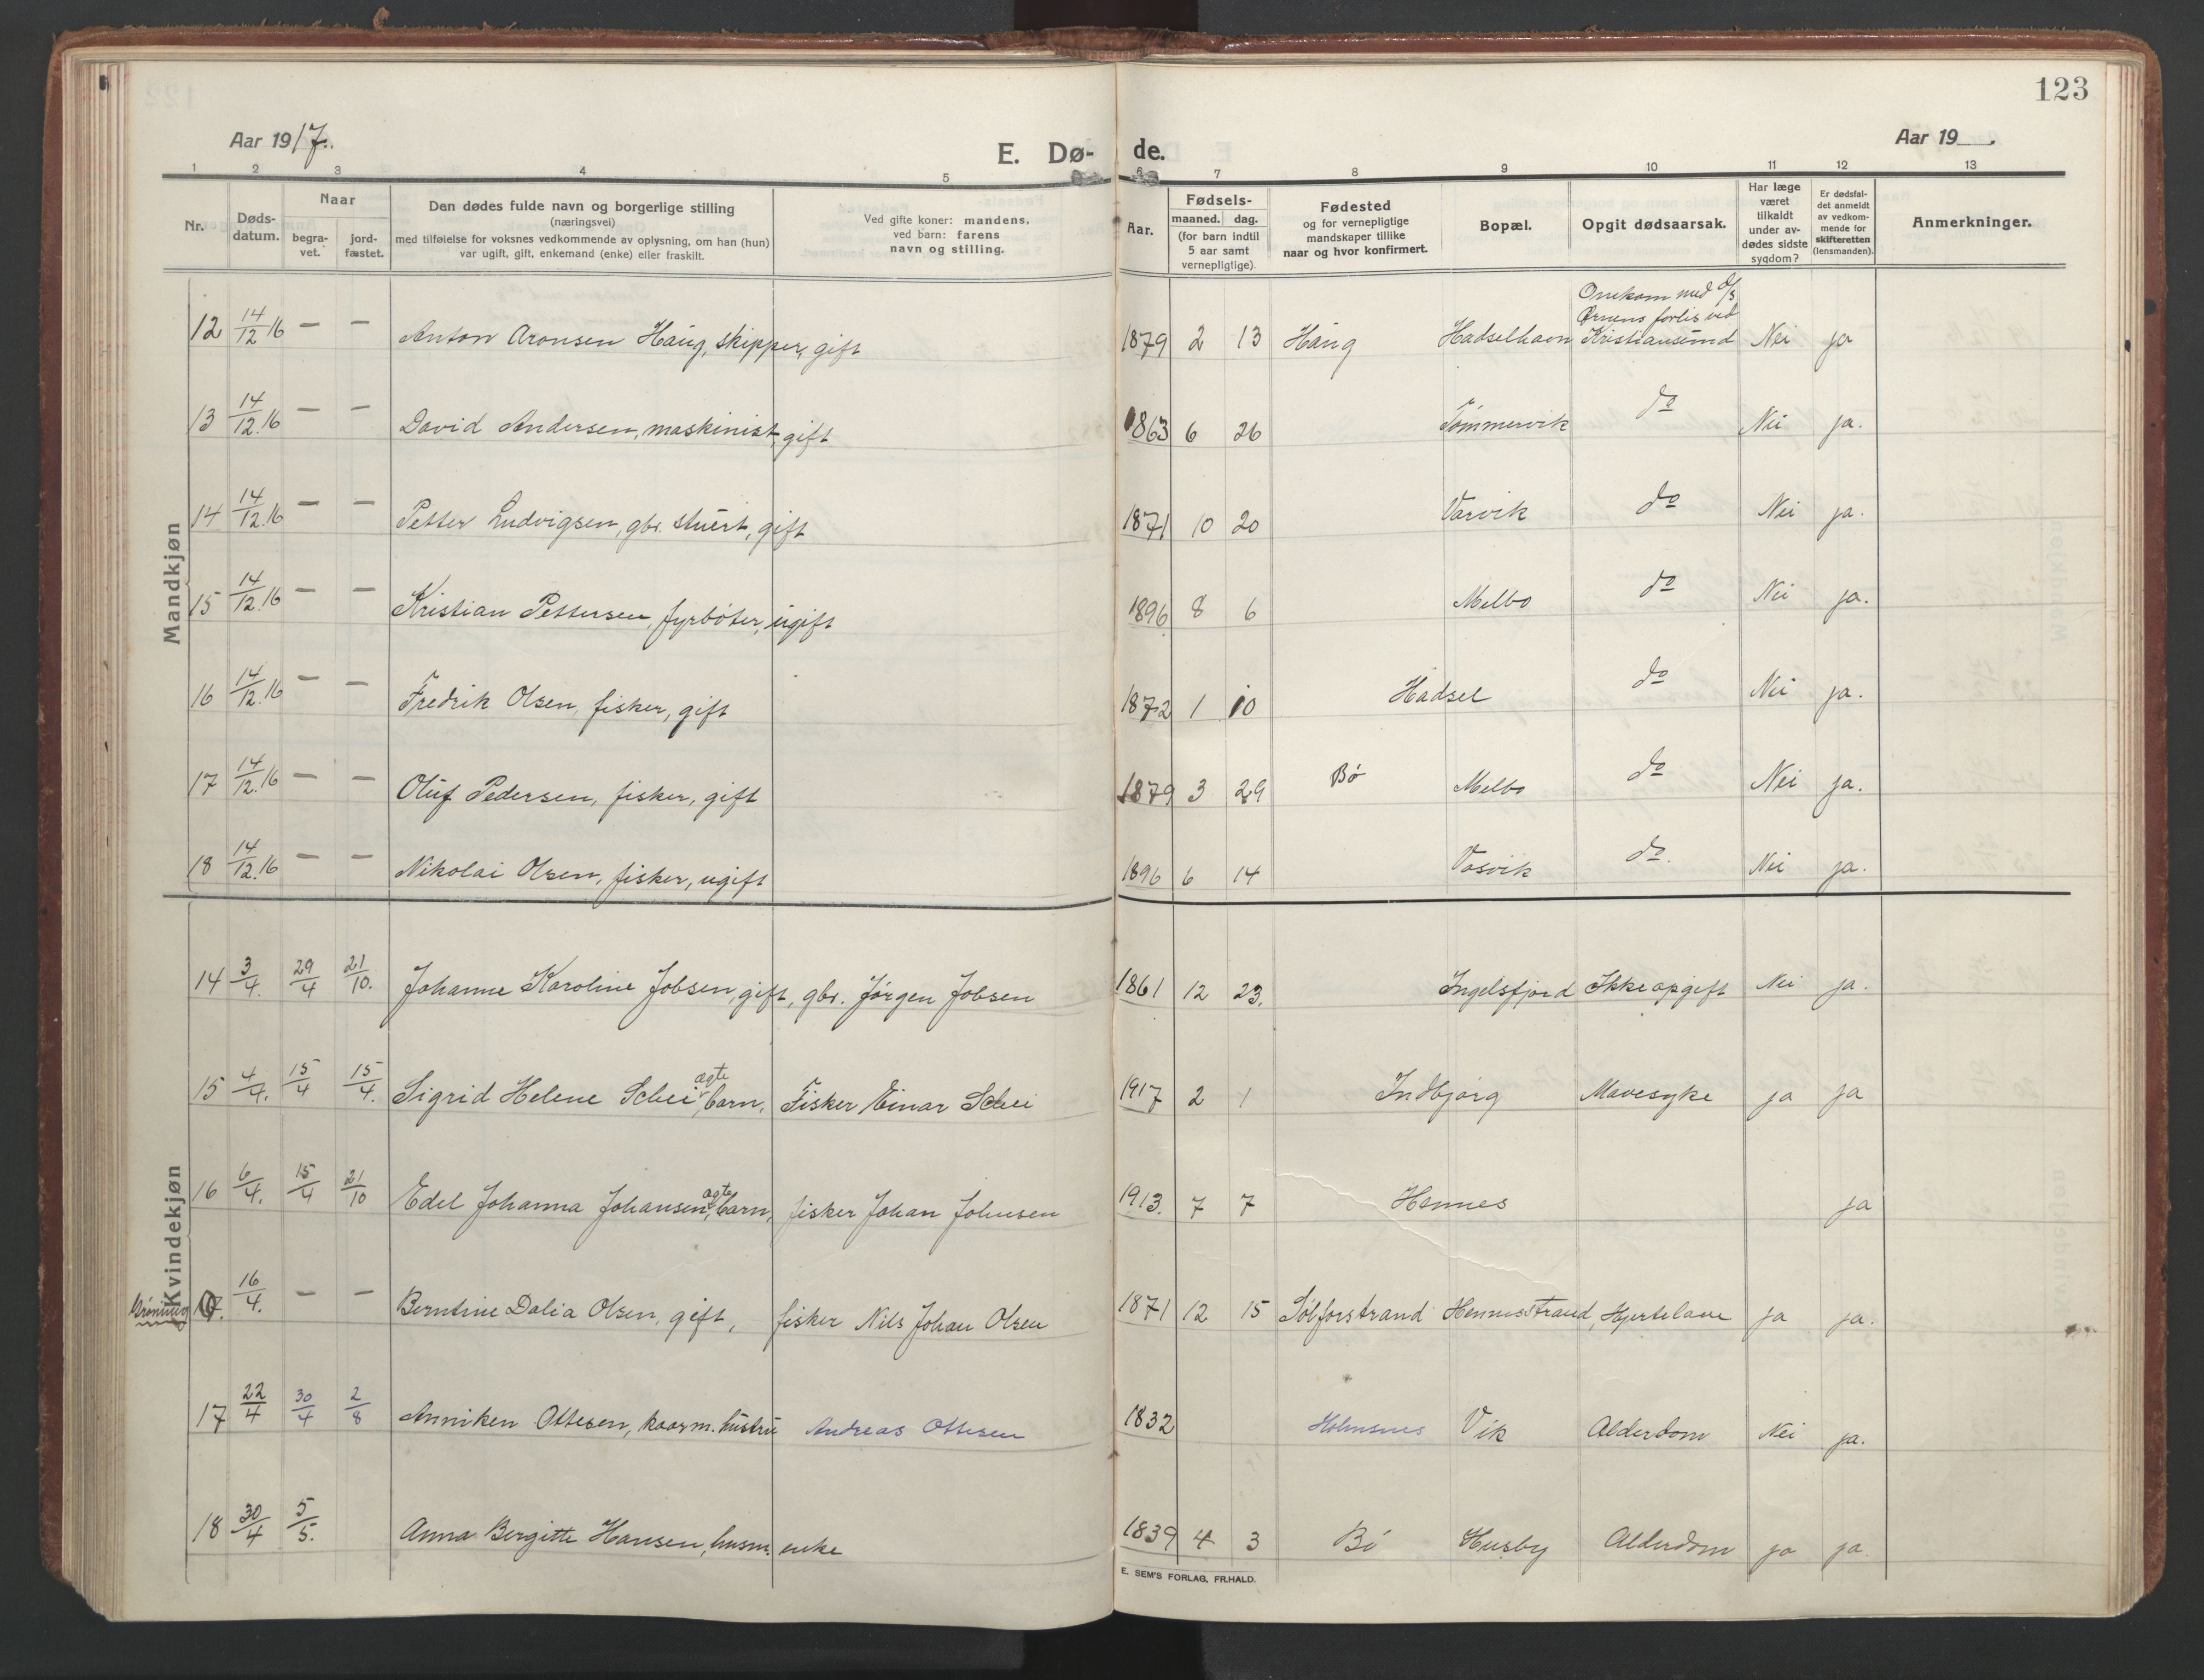 123
Aar 1917.
E. Dø-
de.
Aar 19
1 2 3 4 5 6 7 8 9 10 11 12 13
Nr. Døds-datum. Naar begra-vet. jord-fæstet. Den dødes fulde navn og borgerlige stilling (næringsvei) med tilføielse for voksnes vedkommende av oplysning, om han (hun) var ugift, gift, enkemand (enke) eller fraskilt. Ved gifte koner: mandens, ved barn: farens navn og stilling. Aar. Fødsels- maaned. dag. (for barn indtil 5 aar samt vernepligtige). Fødested og for vernepligtige mandskaper tillike naar og hvor konfirmert. Bopæl. Opgit dødsaarsak. Har læge været tilkaldt under av-dødes sidste sygdom? Er dødsfal-det anmeldt av vedkom-mende for skifteretten (lensmanden). Anmerkninger.
Mandkjøn
12 14/12 16 — — Anton Aronsen Haug, skipper, gift 1879 2 13 Haug Hadselhavn Omkom med d/s Ørnens forlis ved Kristiansund Nei ja
13 14/12.16 — — David Andersen, maskinist, gift 1863 6 26 Tømmervik do Nei ja.
14 14/12.16 — — Petter Ludvigsen, gbr. stuert, gift 1871 10 20 Varvik do Nei ja.
15 14/12.16 — — Kristian Pettersen, fyrbøter, ugift 1896 8 6 Melbo do Nei ja.
16 14/12.16 — — Fredrik Olsen, fisker, gift 1872 1 10 Hadsel do Nei ja.
17 14/12.16 — — Oluf Pedersen, fisker, gift 1879 3 29 Bø Melbo do Nei ja.
18 14/12.16 — — Nikolai Olsen, fisker, ugift 1896 6 14 Vasvik do. Nei ja.
Kvindekjøn
14 3/4. 29/4 21/10. Johanne Karoline Jobsen, gift, gbr. Jørgen Jobsen 1861 12 23. Ingelsfjord Ikke opgift Nei ja.
15 4/4. 15/4 15/4. Sigrid Helene Schei, ægte barn, Fisker Einar Schei 1917 2 1 Indbjørg Mavesyke ja ja
16 6/4. 15/4 21/10 Edel Johanna Johansen, ægte barn, fisker Johan Johnsen 1913. 7 7 Hennes ja
16/4. — — Berntine Dalia Olsen, gift, fisker Nils Johan Olsen 1871 12 15 Sølforstrand Hennesstrand, Hjertelam ja ja.
17 22/4 30/4 2/8 Anniken Ottesen, kaarm. hustru Andreas Ottesen 1832 Holmsnes Vik Alderdom Nei ja.
18 30/4 5/5. Anna Bergitte Hansen, husm. enke 1839 4 3 Bø Husby Alderdom ja ja.
E. SEM'S FORLAG, FR.HALD.